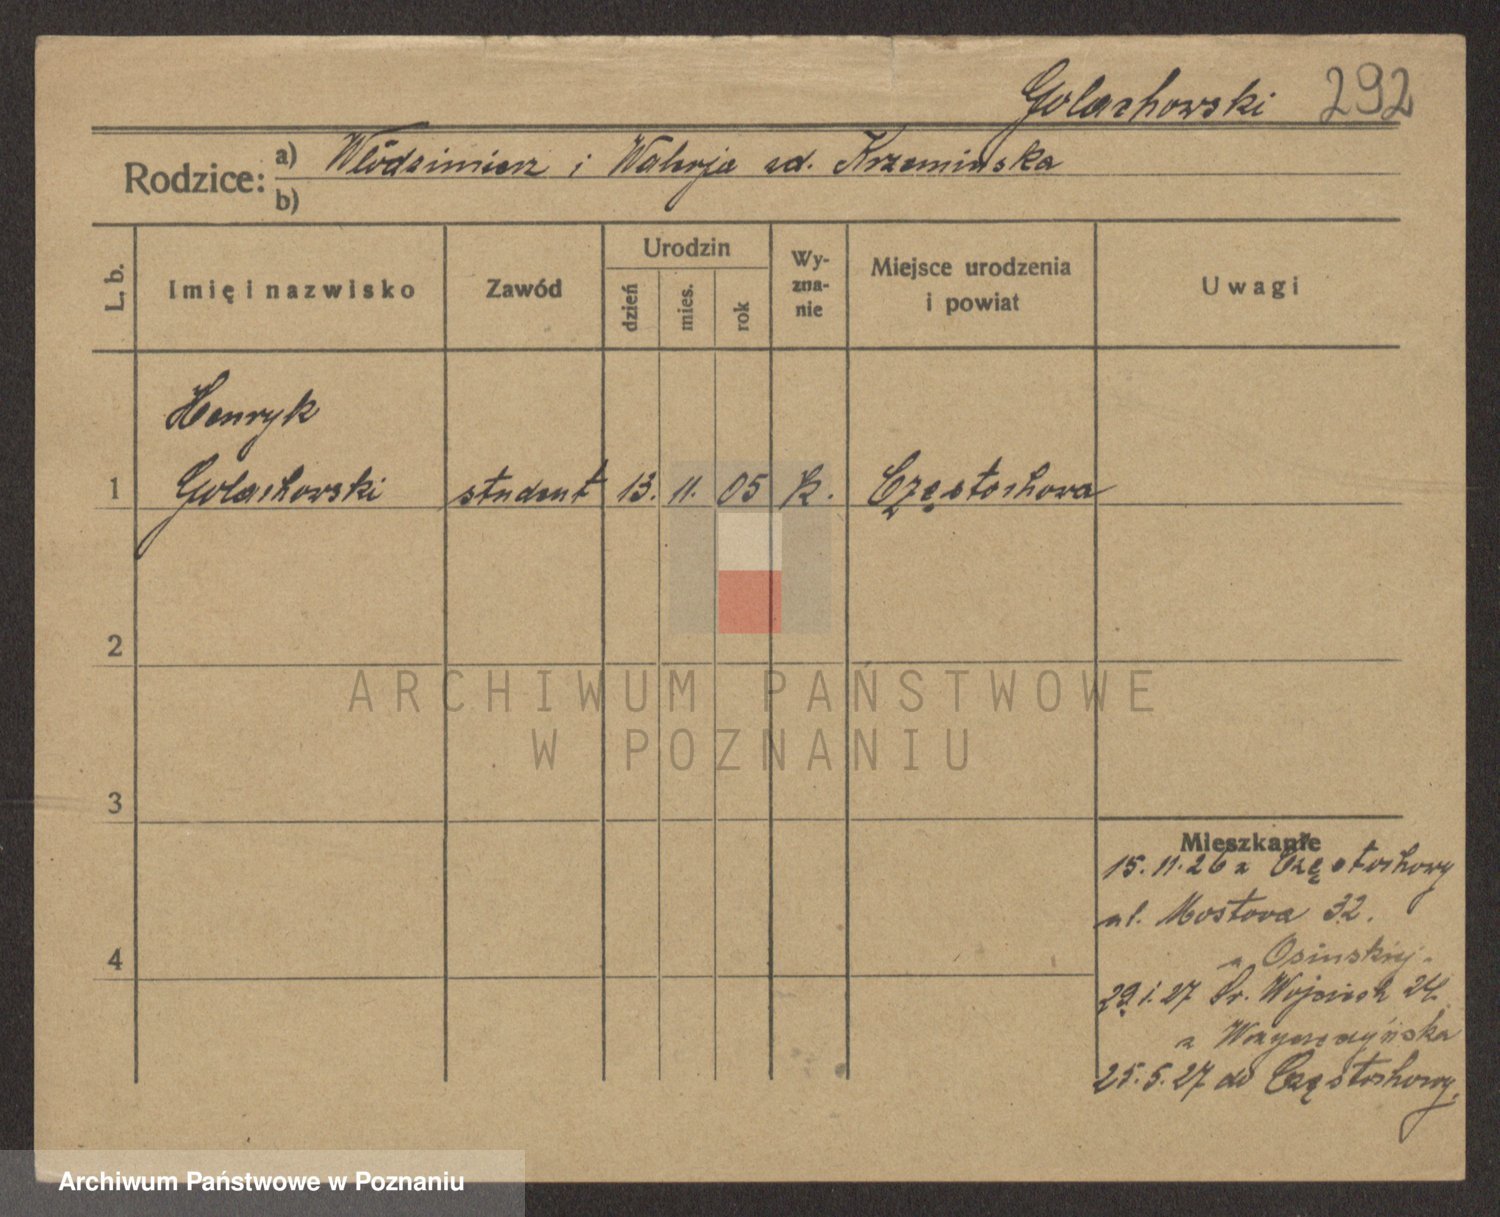 Golachowski 292
Rodzice: a) Włodzimierz i Walerja zd. Krzemińska
b)
L. b. Imię i nazwisko Zawód Urodzin dzień mies. rok Wy-zna-nie Miejsce urodzenia i powiat Uwagi
Henryk
1 Golachowski student 13. 11. 05 k. Częstochowa
2
3
4
Mieszkanie
15.11.26 z Częstochowy
ul. Mostowa 32.
u Osinskiej.
29.1.27 Św. Wojciech 24.
25.5.27 do Częstochowy.
ARCHIWUM PAŃSTWOWE
W POZNANIU
Archiwum Państwowe w Poznaniu